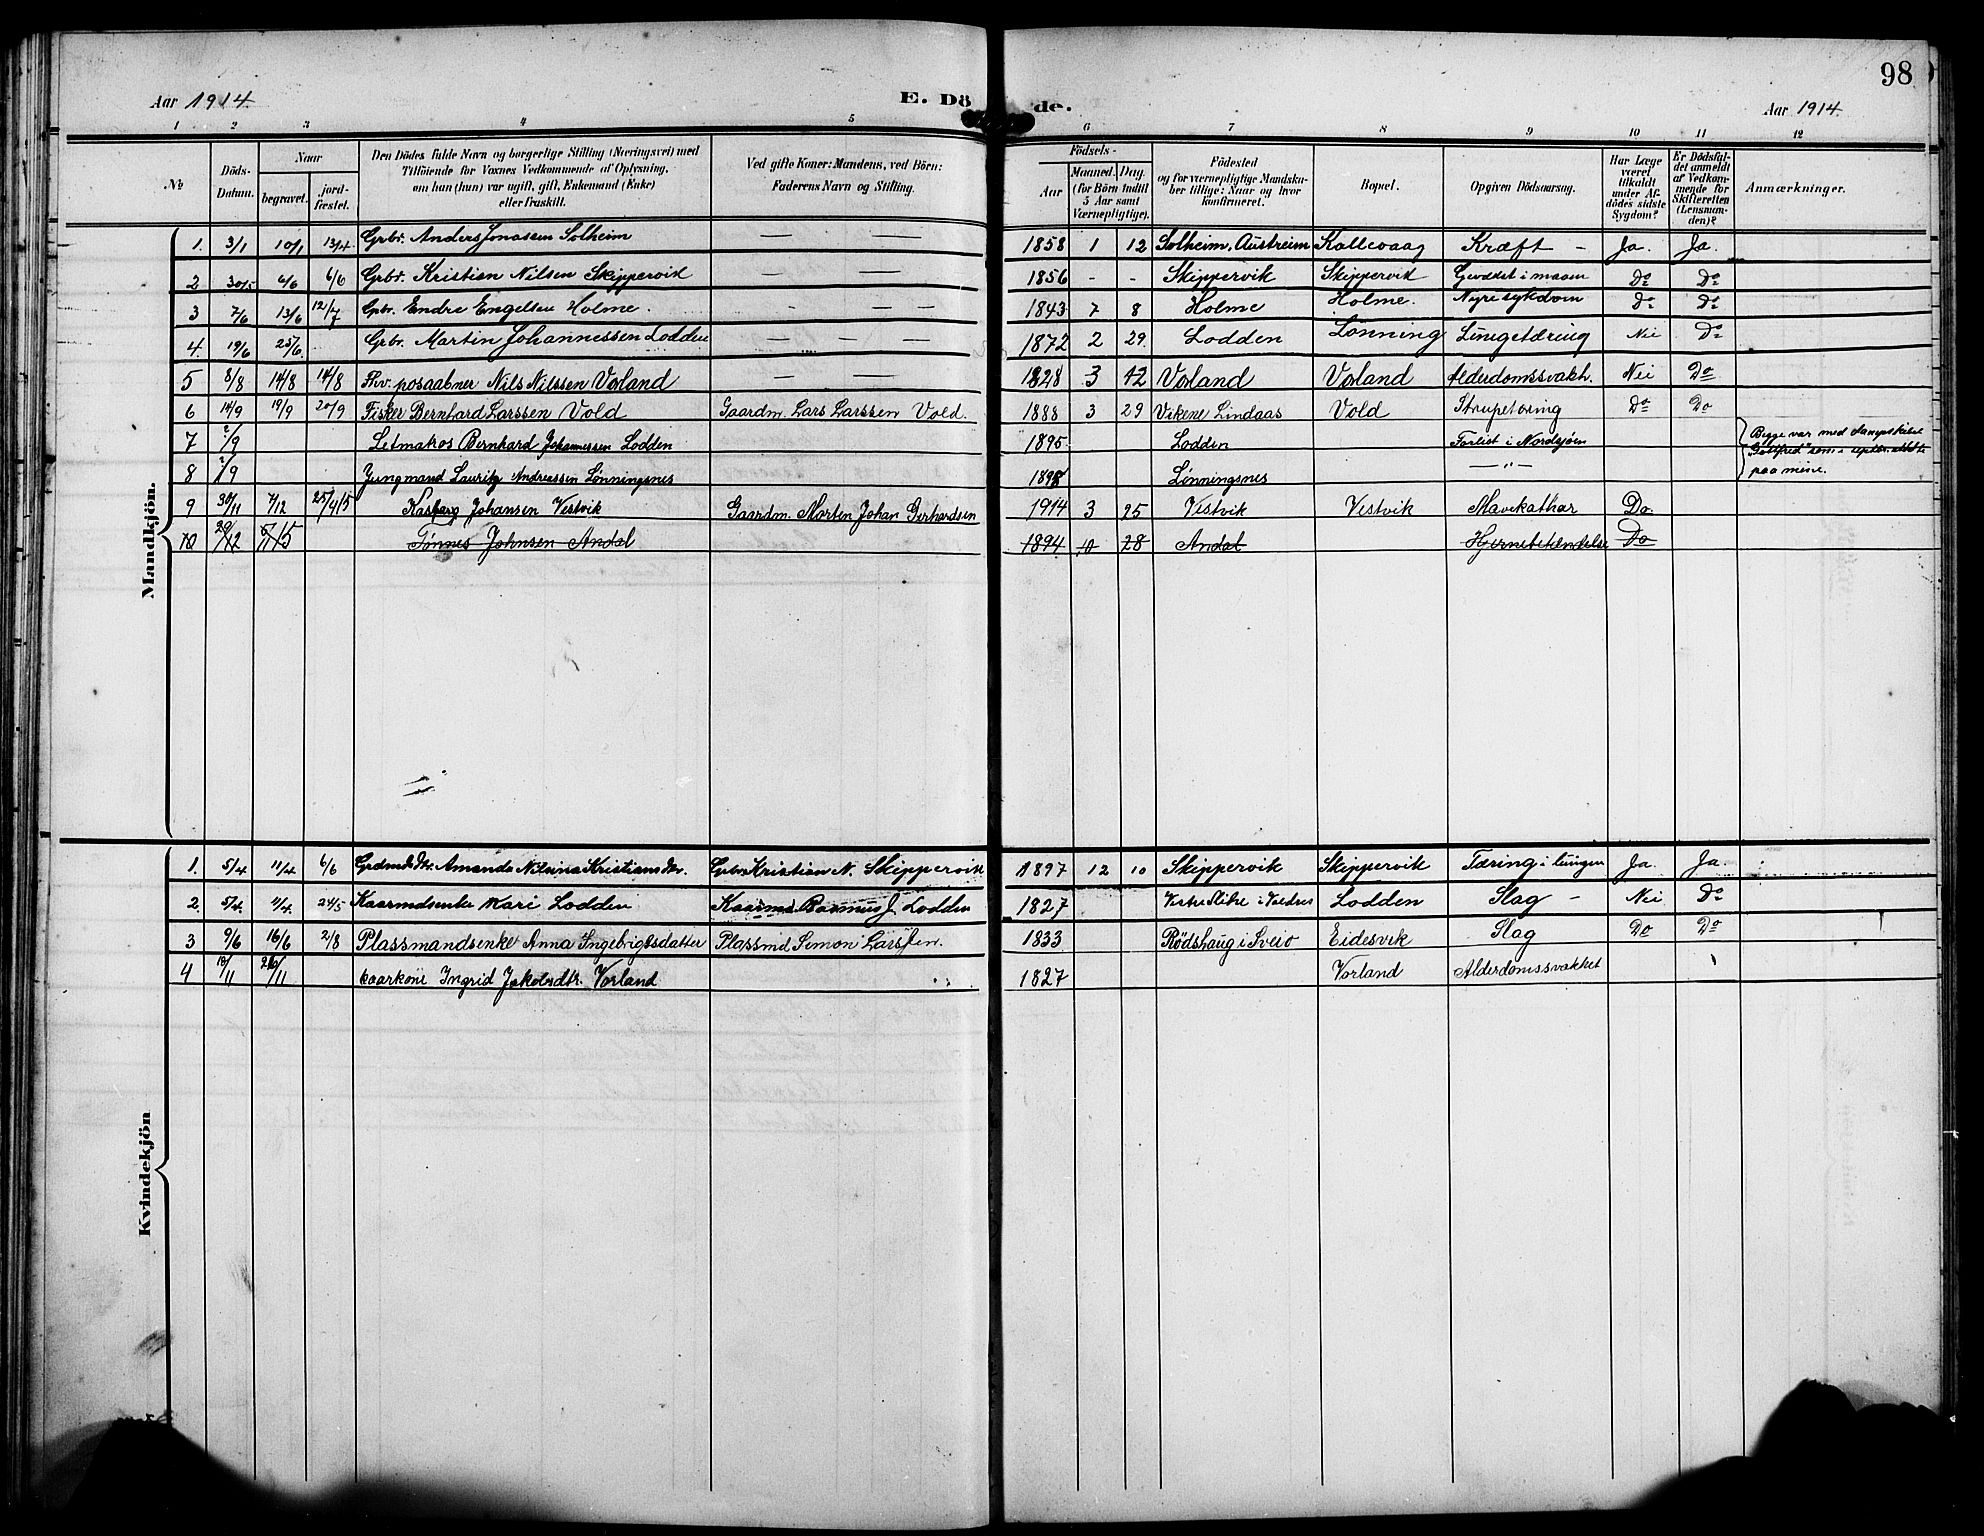 98
Aar 1914. E. Dö de. Aar 1914.
1 2 3 4 5 6 7 8 9 10 11 12
№ Döds-Datum. Naar begravet. jord-fæstet. Den Dödes fulde Navn og borgerlige Stilling (Næringsvei) med Tilföiende for Voxnes Vedkommende af Oplysning, om hun (hun) var ugift, gift, Enkemand (Enke) eller fraskilt. Ved gifte Koner: Mandens, ved Börn: Faderens Navn og Stilling. Födsels- Aar Maaned. Dag. (for Börn indtil 5 Aar samt Værnepligtige). Födested og for værnepligtige Mandska-ber tillige: Naar og hvor konfirmeret. Bopæl. Opgiven Dödsaarsag. Har Læge været tilkaldt under Af-dödes sidste Sygdom? Er Dödsfal-det anmeldt af Vedkom-mende for Skifteretten (Lensman-den)? Anmærkninger.
Mandkjön.
1. 3/1 10/1 13/4 Grbr. Anders Jonassen Solheim — — 1858 1 12 Solheim, Austreim Kallevaag Kræft – Ja. Ja.
2 30/5 6/6 6/6 Grbr. Kristian Nilsen Skippervik — — 1856 - - Skippervik Skippervik Gevækst i maven Do Do
3 7/6 13/6 12/7 Gbr. Endre Engelsen Holme. — — 1843 7 8 Holme Holme. Nyresykdom Do Do
4. 19/6 25/6. Grbr. Martin Johannessen Lodden — — 1872 2 29. Lodden Lønning Lungetæring Nei Do
5 8/8 14/8 14/8 Fhv. posaabner Nils Nilssen Vorland — — 1828 3 12 Vorland Vorland Alderdomssvakh. Nei Do
6 14/9 19/9 20/9 Fisker Bernhard Larssen Vold Gaardm. Lars Larssen Vold. 1888 3 29 Vikene Lindaas Vold Strupetæring Do Do
7 ?/9 Letmatros Bernhard Johannessen Lodden 1895 Lodden Forlist i Nordsjøen Begge var med dampskibet
8 ?/9 Jungmand Lauritz Andreassen Lønningsnes Lønningsnes —„— "Gottfred" som i septbr. støtte
paa mine.
9 30/11 7/12 25/4 15 Kasberg Johansen Vestvik Gaardm. Morten Johan Gerhardsen 1914 3 25 Vestvik Vestvik Mavekathar Do.
10 29/12 5/1 15 Tønnes Johnsen Andal 1894 10 28 Andal Hjernebetændelse Do
Kvindekjön
1. 5/4 11/4 6/6 Grdmds dtr. Amanda Nilsina Kristiansdtr. Grbr Kristian N. Skippervik 1897 12 10 Skippervik Skippervik Tæring i lungen Ja. Ja.
2. 5/4. 11/4. 24/5 Kaarmdsenke Mari Lodden Kaarmd. Rasmus J. Lodden 1827 Vestre Slidre i Valdres Lodden Slag – Nei Do
3 9/6 16/6 2/8 Plassmandsenke Anna Ingebrigtsdatter Plassmd Simon Larssen. 1833 Rødshaug i Sveio Eidesvik Slag Do Do
4 /11 /11 kaarkone Ingrid Jakobsdtr. Vorland 1827 Vorland Alderdomssvakhet